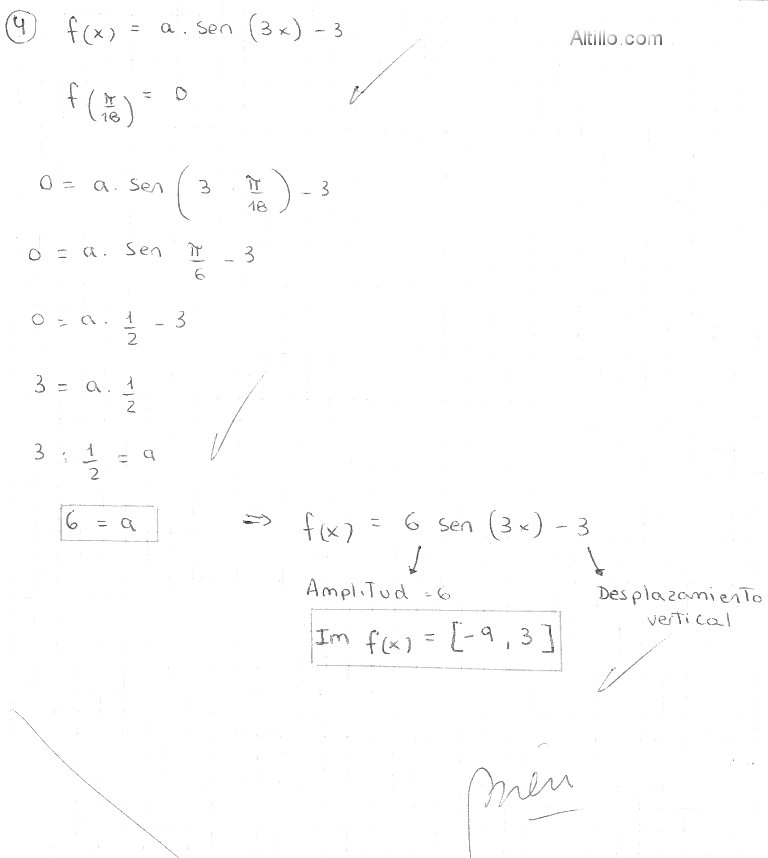 ④ f(x) = a . sen (3x) - 3
Altillo.com
f(π/18) = 0
0 = a. sen (3 . π/18) - 3
0 = a. sen π/6 - 3
0 = a. 1/2 - 3
3 = a. 1/2
3 : 1/2 = a
6 = a ⇒ f(x) = 6 sen (3x) - 3
Amplitud = 6
Desplazamiento
vertical
Im f(x) = [-9, 3]